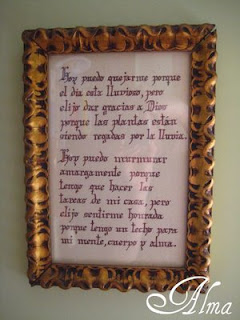 Hoy puedo quejarme porque
el dia esta lluvioso, pero
elijo dar gracias a Dios
porque las plantas estan
siendo regadas por la lluvia.
Hoy puedo murmurar
amargamente porque
tengo que hacer las
tareas de mi casa, pero
elijo sentirme honrada
porque tengo un techo para
mi mente, cuerpo y alma.
Alma